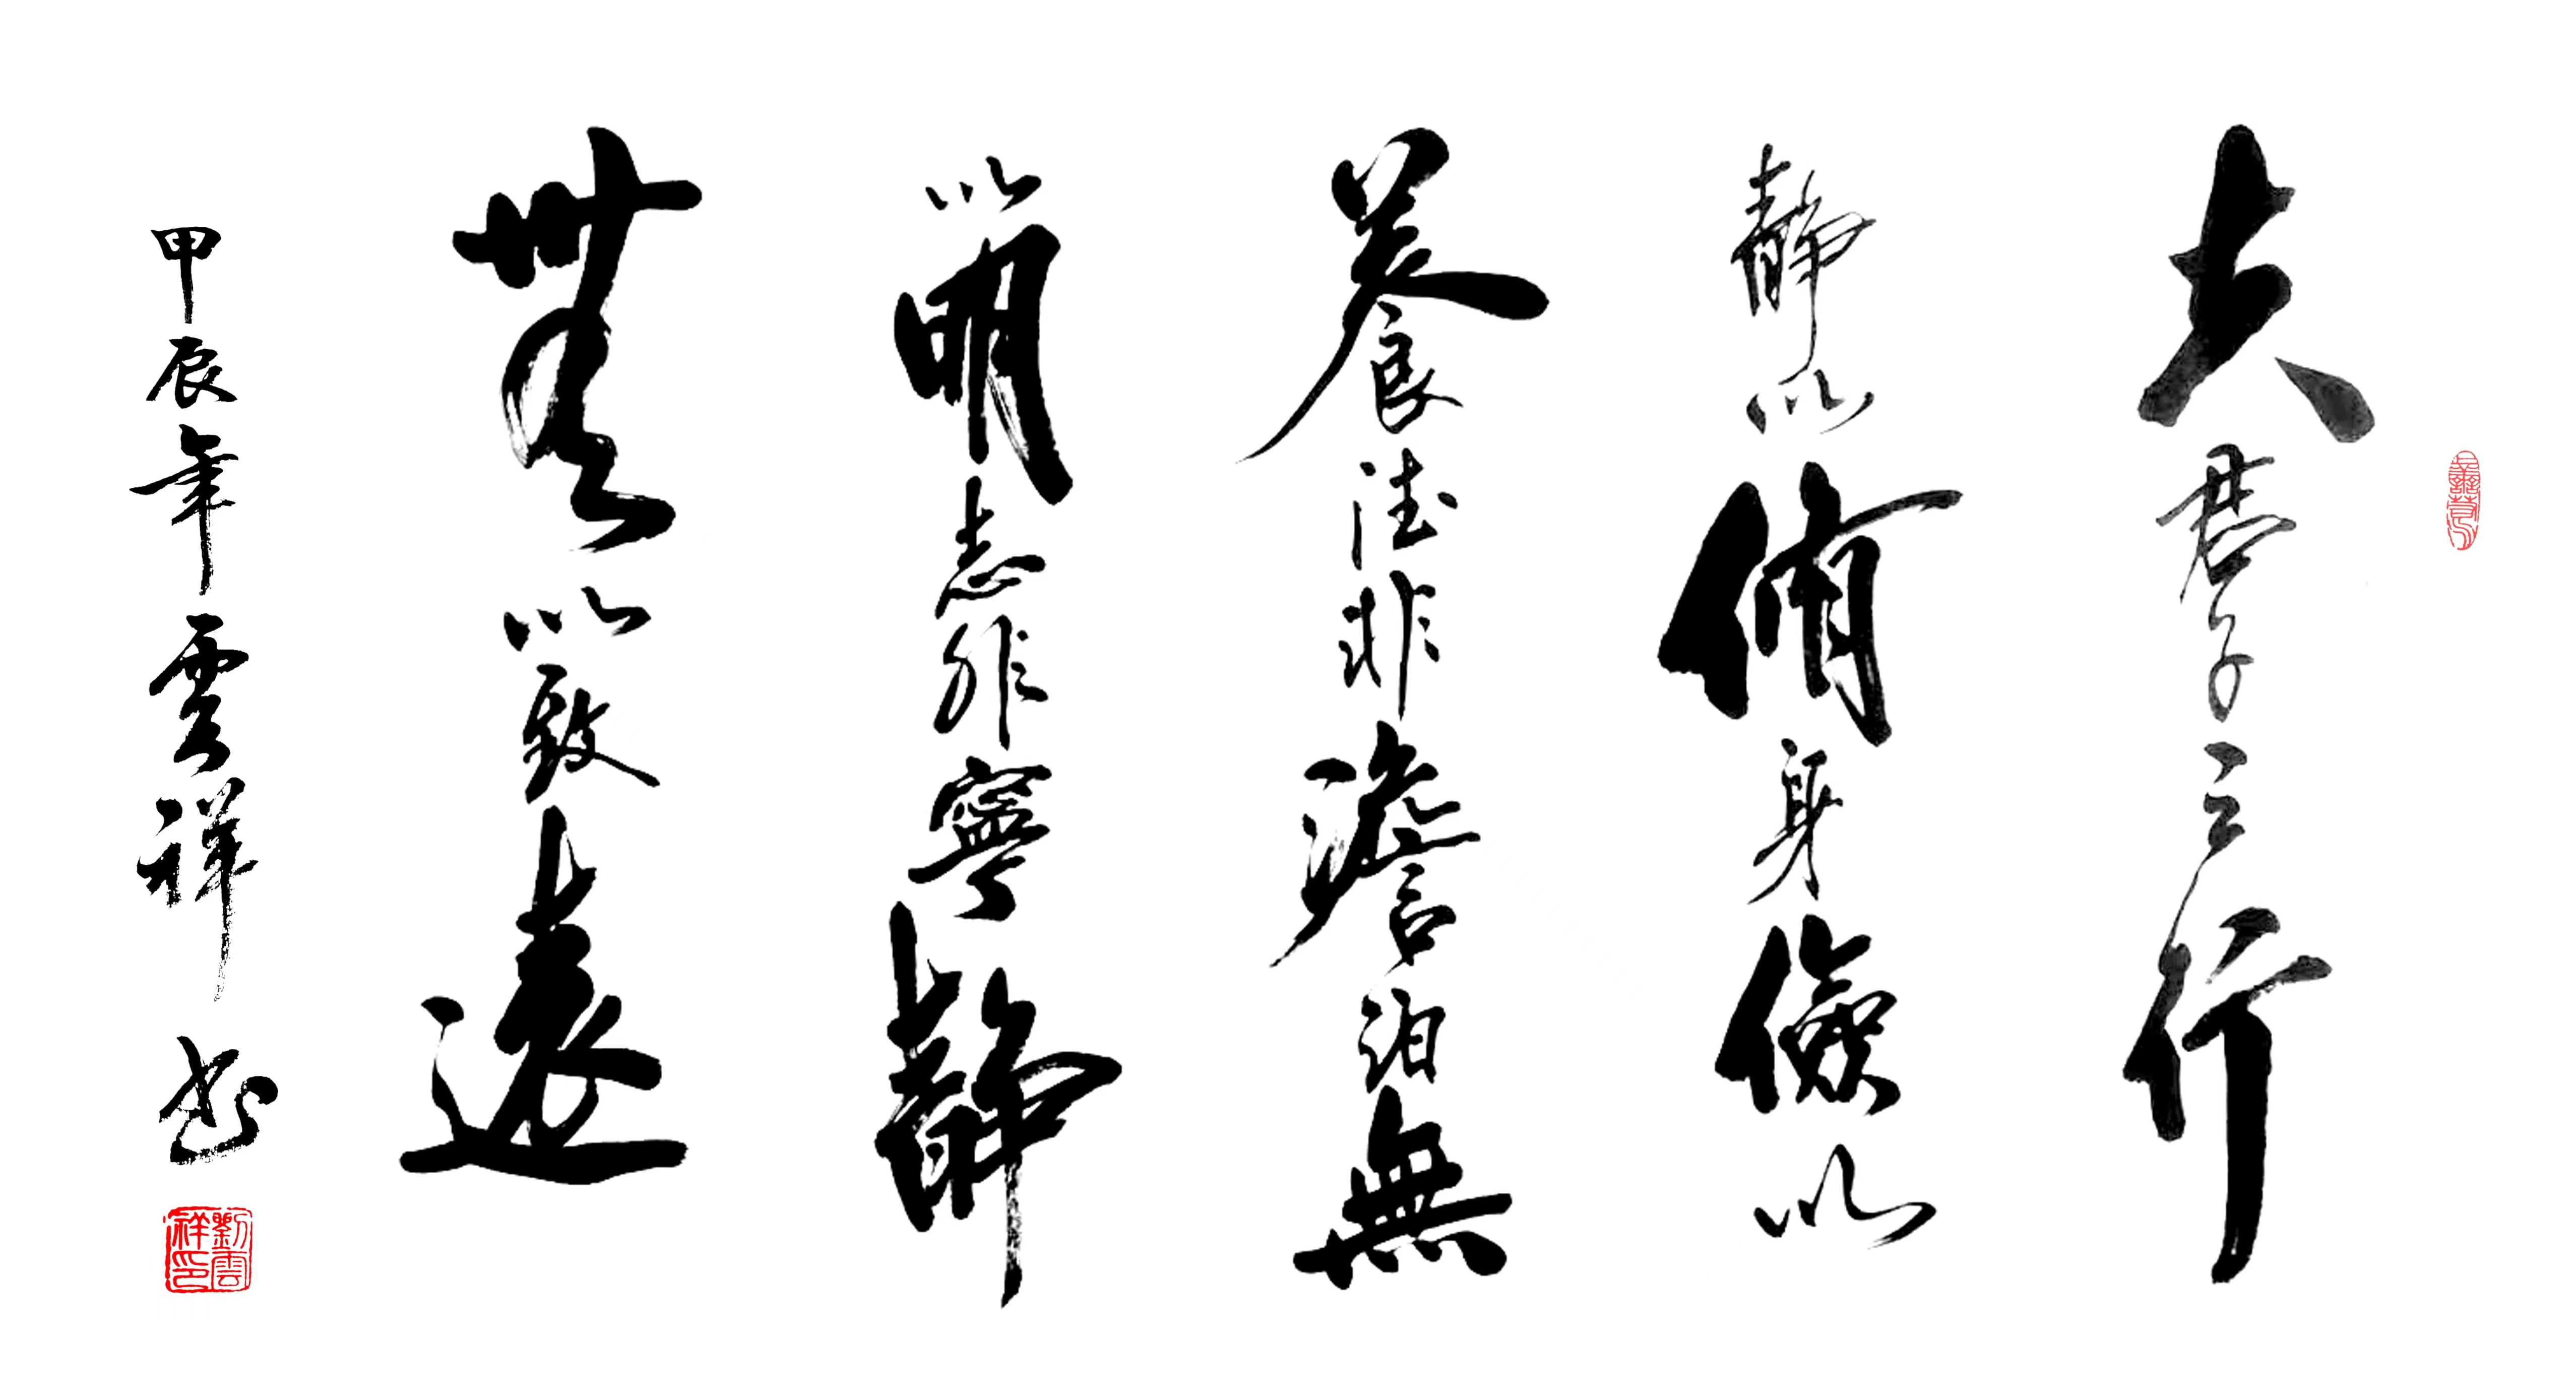 夫君子之行
靜以脩身儉以
養德非澹泊無
以明志非寧靜
無以致遠
甲辰年雲祥書
劉雲祥印